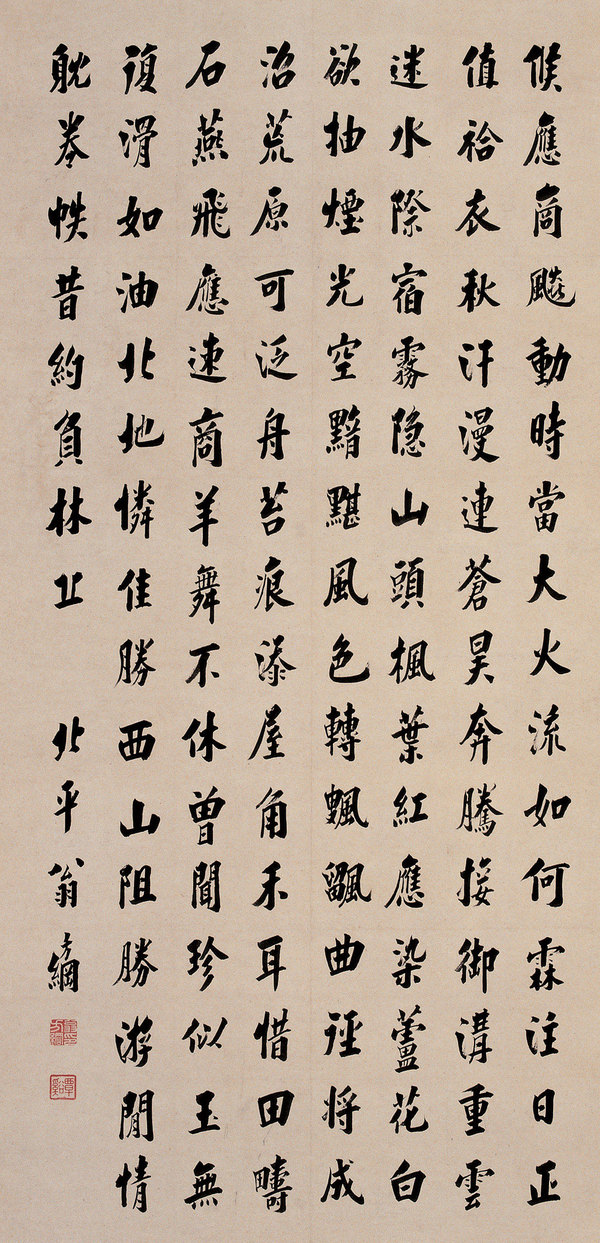 候應商飈動時當大火流如何霖注日正
值袷衣秋汗漫連蒼昊奔騰接御溝重雲
迷水際宿霧隐山頭楓葉紅應染蘆花白
欲抽煙光空黯黮風色轉颼飀曲逕將成
沼荒原可泛舟苔痕添屋角禾耳借田疇
石燕飛應速商羊舞不休曾聞珍似玉無
復滑如油北地憐佳勝西山阻勝游閒情
躭卷帙昔約負林丘 北平翁方綱
覃谿